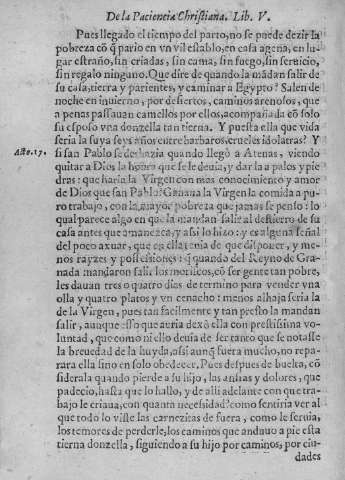 De la Paciencia Christiana. Lib. V.
Pues llegado el tiempo del parto, no se puede dezir la
pobreza cõ q̃ pario en vn vil establo, en casa agena, en lu-
gar estraño, sin criadas, sin cama, sin fuego, sin seruicio,
sin regalo ninguno. Que dire de quando la mãdan salir de
su casa, tierra y parientes, y caminar a Egypto? Salen de
noche en inuierno, por desiertos, caminos arenosos, que
a penas passauan camellos por ellos, acompañada cõ solo
su esposo vna donzella tan tierna. Y puesta ella que vida
seria la suya seys años entre barbaros, crueles idolatras? Y
Acto. 17.
si san Pablo se deshazia quando llegò a Atenas, viendo
quitar a Dios la honra que se le deuia, y dar la a palos y pie
dras: que haria la Virgen con mas conocimiento y amor
de Dios que san Pablo? Ganaua la Virgen la comida a pu-
ro trabajo, con la mayor pobreza que jamas se penso: lo
qual parece algo en que la mandan salir al destierro de su
casa antes que amanezca, y assi lo hizo: y es alguna señal
del poco axuar, que en ella tenia de que disponer, y me-
nos rayzes y possessiones: q̃ quando del Reyno de Gra-
nada mandaron salir los moriscos, cõ ser gente tan pobre,
les dauan tres o quatro dias de termino para vender vna
olla y quatro platos y vn cenacho: menos alhaja seria la
de la Virgen, pues tan facilmente y tan presto la mandan
salir, aunque esso que auria dexò ella con prestissima vo-
luntad, que como ni ello deuia de ser tanto que se notasse
la breuedad de la huyda, assi aunq̃ fuera mucho, no repa-
rara ella sino en solo obedecer. Pues despues de buelta, cõ
siderala quando pierde a su hijo, las ansias y dolores, que
padecio, hasta que lo hallo, y de alli adelante con que tra-
bajo le criaua, con quanta necessidad? como sentiria ver al
que todo lo viste las carnezitas de fuera, como le seruia,
los temores de perderle, los caminos que anduuo a pie esta
tierna donzella, siguiendo a su hijo por caminos, por ciu-
dades